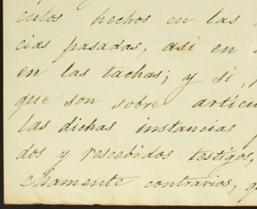 culos hechos en las
cias pasadas, asi en
en las tachas; y si,
que son sobre articu
las dichas instancias
dos y rescebidos testigos,
chamente contrarios, q